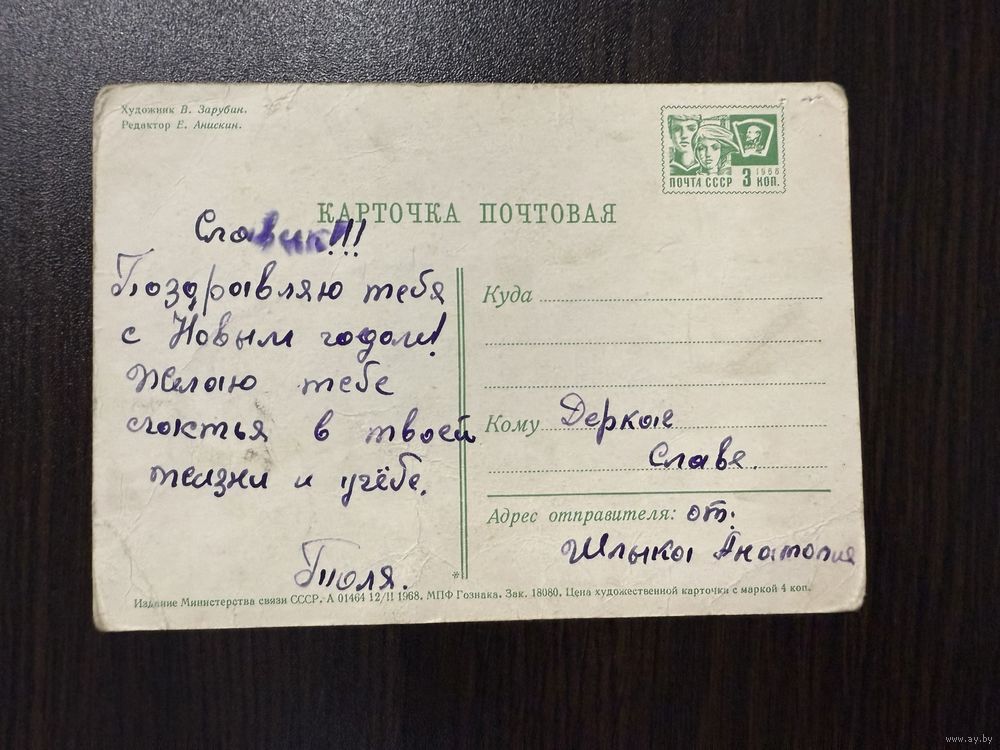 Художник В. Зарубин.
Редактор Е. Анискин.
ПОЧТА СССР 3 КОП.
1966
КАРТОЧКА ПОЧТОВАЯ
Славик!!!
Поздравляю тебя
с Новым годом!
Желаю тебе
счастья в твоей
жизни и учёбе.
Толя.
Куда
Кому Деркач
Славе.
Адрес отправителя: от.
Шлыка Анатолия
*
Издание Министерства связи СССР. А 01464 12/II 1968. МПФ Гознака. Зак. 18080. Цена художественной карточки с маркой 4 коп.
www.ay.by